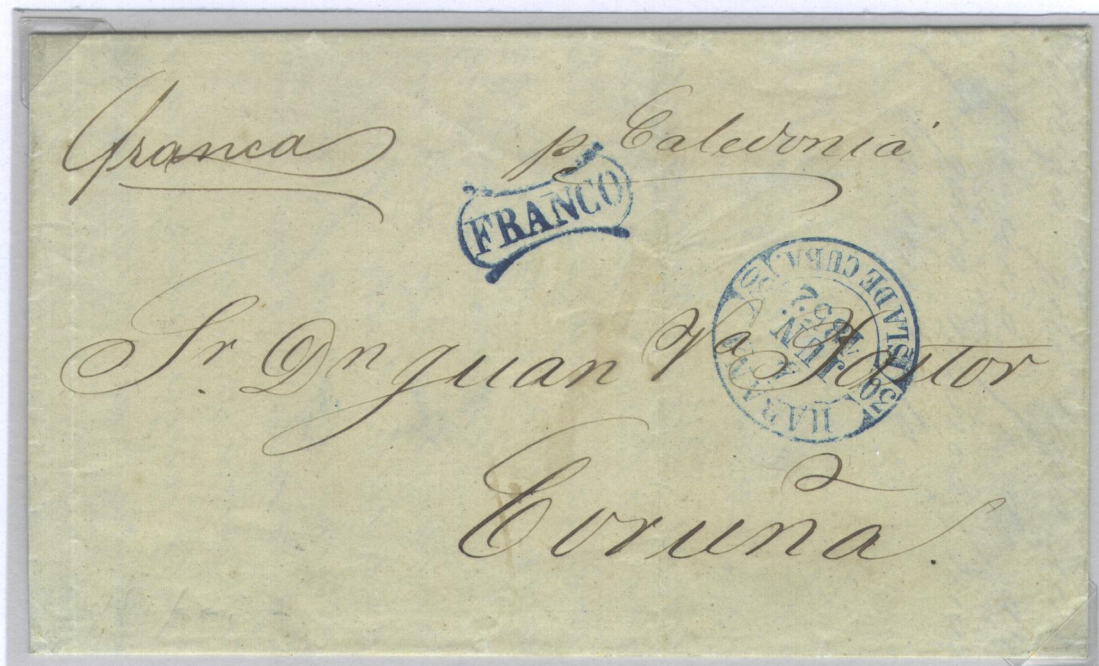 Franca p Caledonia
FRANCO
HABANA ISLA DE CUBA. 30
JUN
1852
Sr. Dn Juan Va
Coruña.